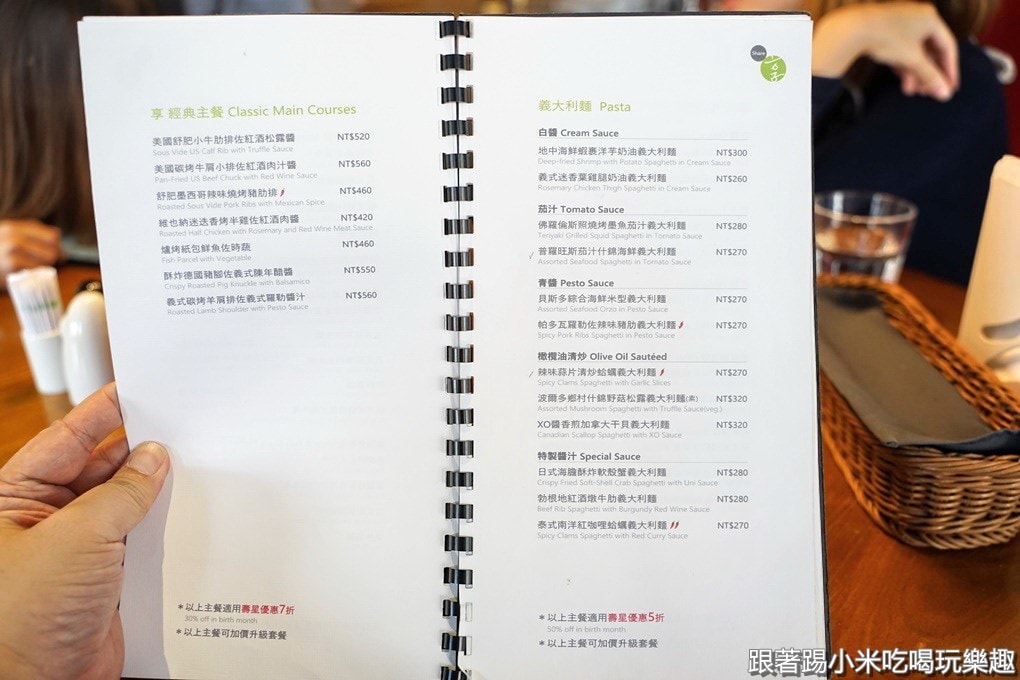 享 經典主餐 Classic Main Courses
美國舒肥小牛肋排佐紅酒松露醬 NT$520
Sous Vide US Calf Rib with Truffle Sauce
美國碳烤牛肩小排佐紅酒肉汁醬 NT$560
Pan-Fried US Beef Chuck with Red Wine Sauce
舒肥墨西哥辣味燒烤豬肋排 NT$460
Roasted Sous Vide Pork Ribs with Mexican Spice
維也納迷迭香烤半雞佐紅酒肉醬 NT$420
Roasted Half Chicken with Rosemary and Red Wine Meat Sauce
爐烤紙包鮮魚佐時蔬 NT$460
Fish Parcel with Vegetable
酥炸德國豬腳佐義式陳年醋醬 NT$550
Crispy Roasted Pig Knuckle with Balsamico
義式碳烤羊肩排佐義式羅勒醬汁 NT$560
Roasted Lamb Shoulder with Pesto Sauce
*以上主餐適用壽星優惠7折
30% off in birth month
*以上主餐可加價升級套餐
Share
享
義大利麵 Pasta
白醬 Cream Sauce
地中海鮮蝦裹洋芋奶油義大利麵 NT$300
Deep-fried Shrimp with Potato Spaghetti in Cream Sauce
義式迷香葉雞腿奶油義大利麵 NT$260
Rosemary Chicken Thigh Spaghetti in Cream Sauce
茄汁 Tomato Sauce
佛羅倫斯照燒烤墨魚茄汁義大利麵 NT$280
Teriyaki Grilled Squid Spaghetti in Tomato Sauce
普羅旺斯茄汁什錦海鮮義大利麵 NT$270
Assorted Seafood Spaghetti in Tomato Sauce
青醬 Pesto Sauce
貝斯多綜合海鮮米型義大利麵 NT$270
Assorted Seafood Orzo in Pesto Sauce
帕多瓦羅勒佐辣味豬肋義大利麵 NT$270
Spicy Pork Ribs Spaghetti in Pesto Sauce
橄欖油清炒 Olive Oil Sautéed
辣味蒜片清炒蛤蠣義大利麵 NT$270
Spicy Clams Spaghetti with Garlic Slices
波爾多鄉村什錦野菇松露義大利麵(素) NT$320
Assorted Mushroom Spaghetti with Truffle Sauce(veg.)
XO醬香煎加拿大干貝義大利麵 NT$320
Canadian Scallop Spaghetti with XO Sauce
特製醬汁 Special Sauce
日式海膽酥炸軟殼蟹義大利麵 NT$280
Crispy Fried Soft-Shell Crab Spaghetti with Uni Sauce
勃根地紅酒燉牛肋義大利麵 NT$280
Beef Rib Spaghetti with Burgundy Red Wine Sauce
泰式南洋紅咖哩蛤蠣義大利麵 NT$270
Spicy Clams Spaghetti with Red Curry Sauce
*以上主餐適用壽星優惠5折
50% off in birth month
*以上主餐可加價升級套餐
跟著踢小米吃喝玩樂趣